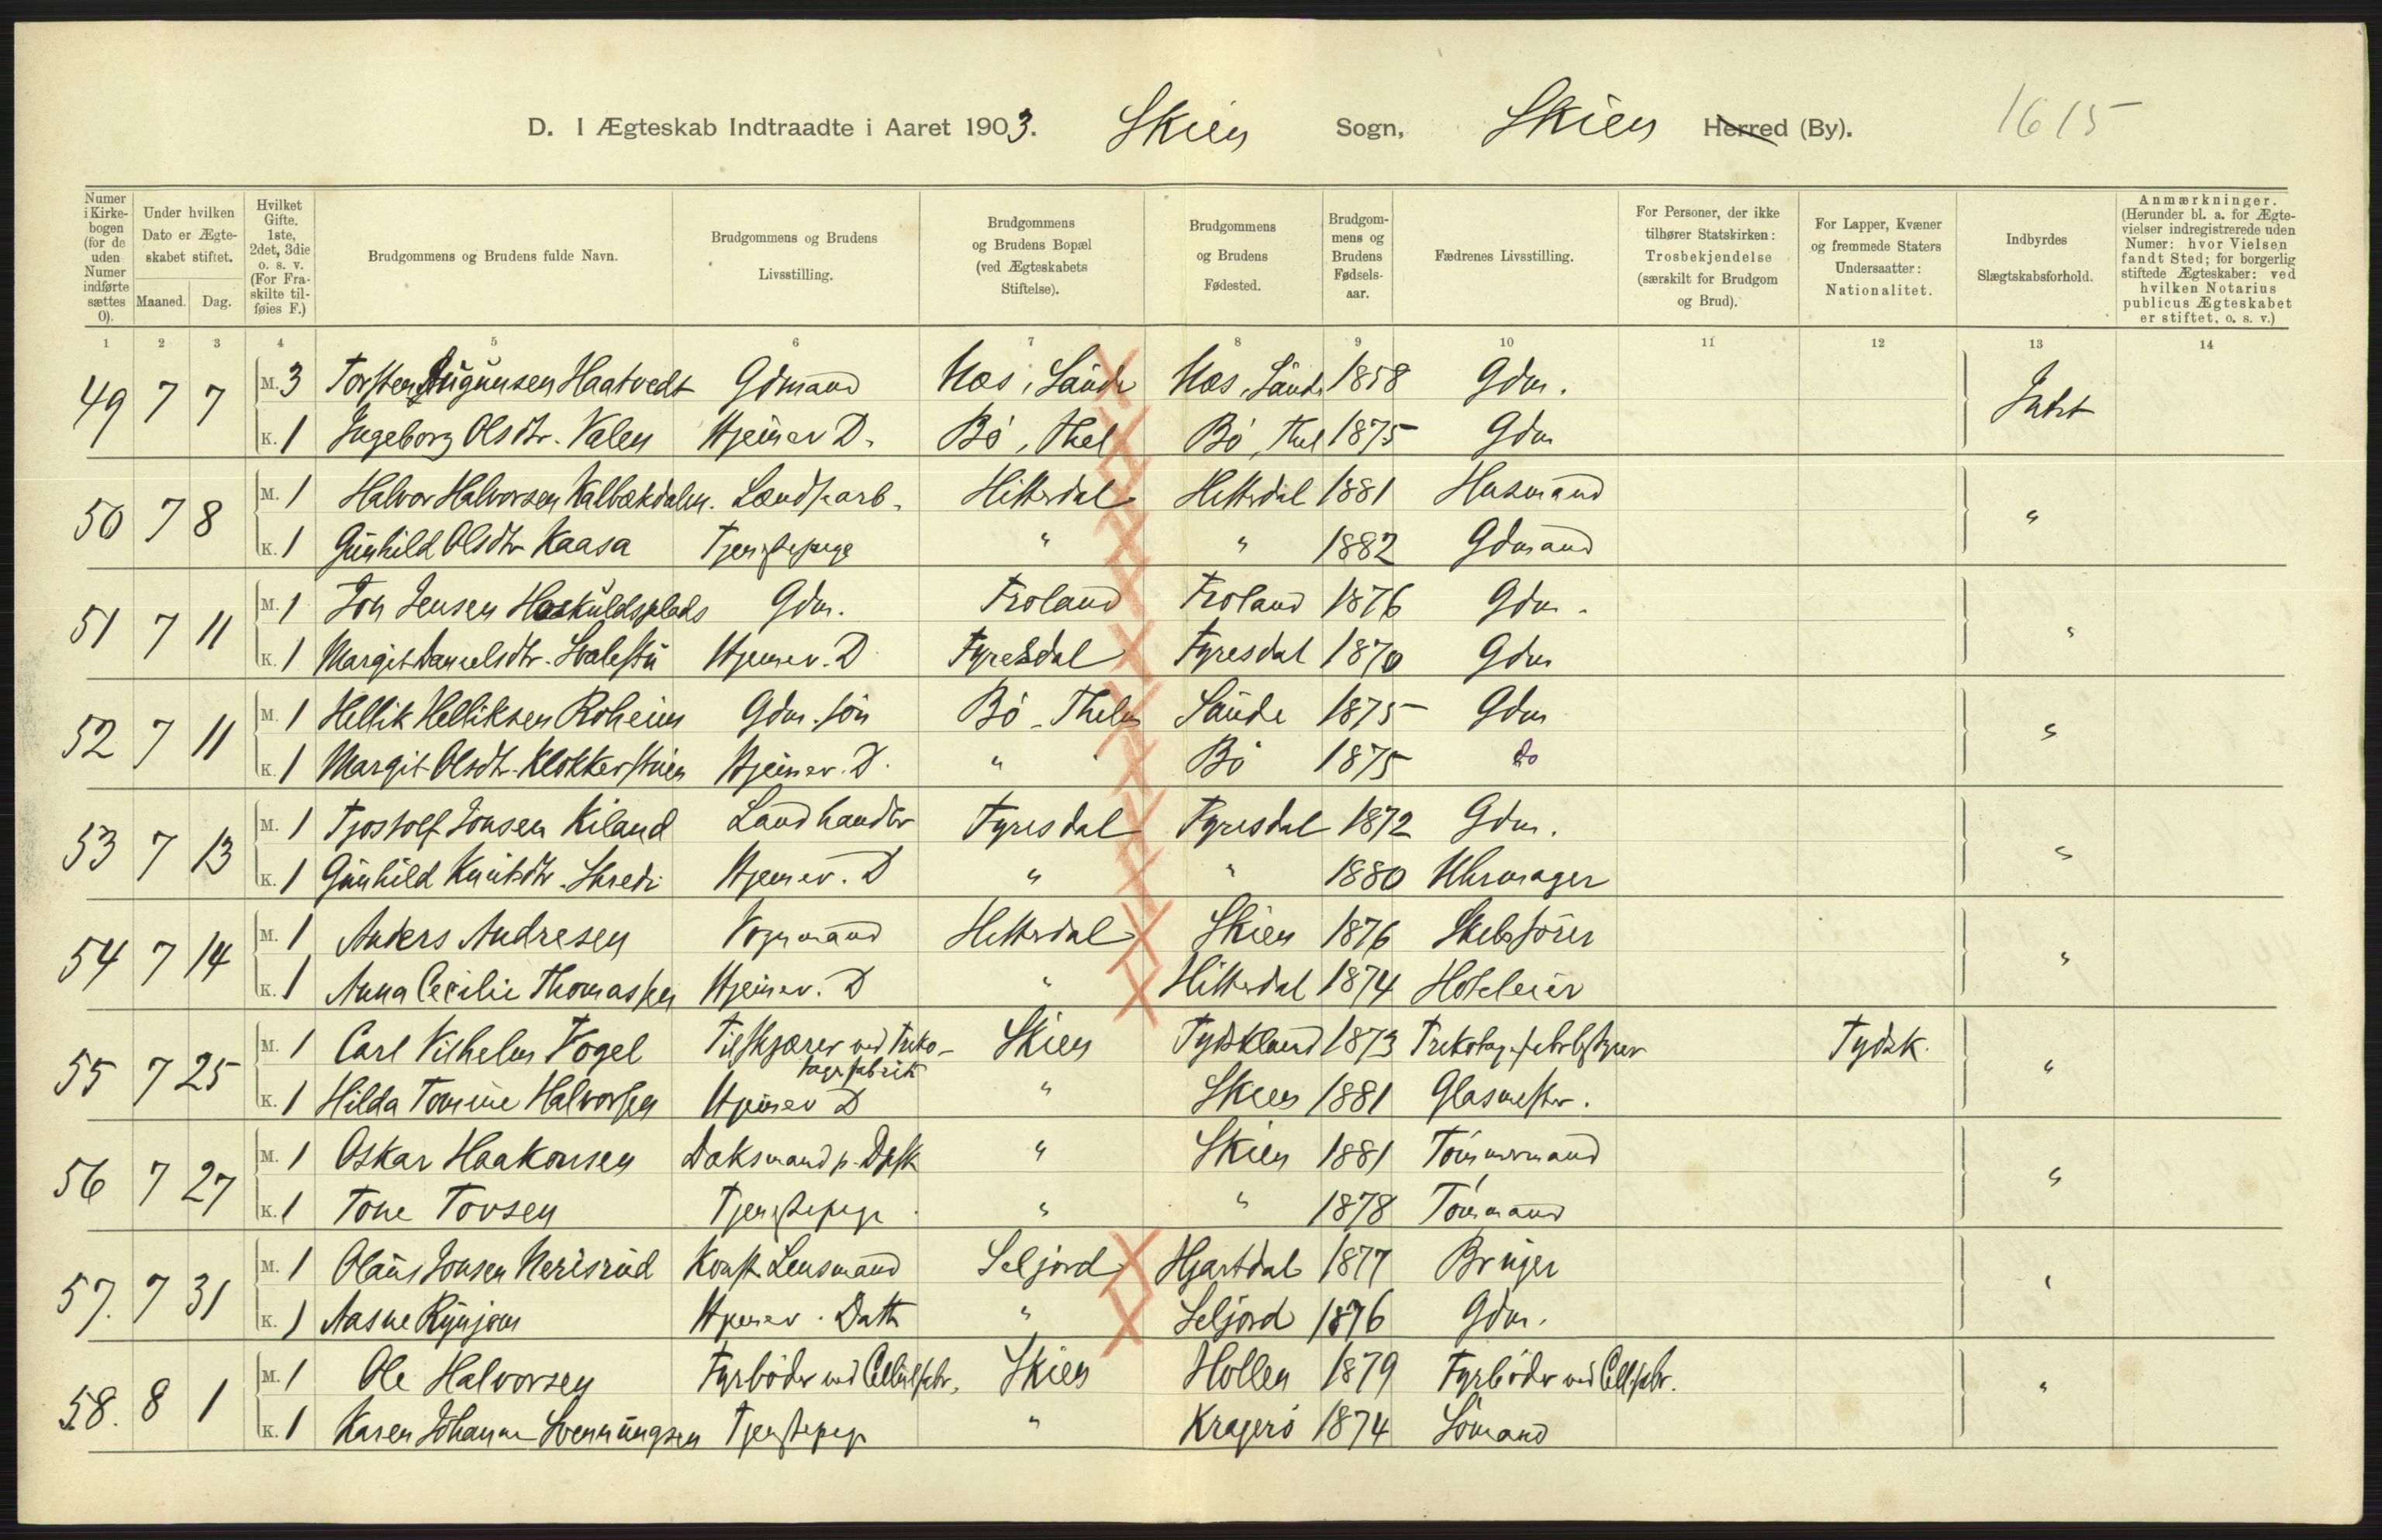 D. I Ægteskab Indtraadte i Aaret 1903. Skien Sogn, Skien Herred (By). 1615
Numer i Kirkebogen (for de uden Numer indførte sættes 0).
Under hvilken Dato er Ægteskabet stiftet.
Maaned. Dag.
Hvilket Gifte. 1ste, 2det, 3die o. s. v. (For Fraskilte tilføies F.)
Brudgommens og Brudens fulde Navn.
Brudgommens og Brudens Livsstilling.
Brudgommens og Brudens Bopæl (ved Ægteskabets Stiftelse).
Brudgommens og Brudens Fødested.
Brudgommens og Brudens Fødselsaar.
Fædrenes Livsstilling.
For Personer, der ikke tilhører Statskirken: Trosbekjendelse (særskilt for Brudgom og Brud).
For Lapper, Kvæner og fremmede Staters Undersaatter: Nationalitet.
Indbyrdes Slægtskabsforhold.
Anmærkninger. (Herunder bl. a. for Ægtevielser indregistrerede uden Numer: hvor Vielsen fandt Sted; for borgerlig stiftede Ægteskaber: ved hvilken Notarius publicus Ægteskabet er stiftet, o. s. v.)
1 2 3 4 5 6 7 8 9 10 11 12 13 14
49 7 7 M. 3 Torsten Haatvedt Gdmand Næs, Saude Næs, Saude 1858 Gdm. Intet
K. 1 Ingeborg Olsdtr. Valen Hjemmev D. Bö, Thel Bö, Thel 1875 Gdm
50 7 8 M. 1 Halvor Halvorsen Kalbækdalen. Landsarb. Hitterdal Hitterdal 1881 Husmand "
K. 1 Gunhild Olsdtr Kaasa Tjenestepige " " 1882 Gdmand
51 7 11 M. 1 Jon Jensen Haskuldsplads Gdm. Froland Froland 1876 Gdm. "
K. 1 Margit Danielsdtr. Svalestu Hjemmev. D Fyresdal Fyresdal 1870 Gdm
52 7 11 M. 1 Hellik Helliksen Roheim Gdm. sön Bö - Thelm Saude 1875 Gdm "
K. 1 Margit Olsdtr. Klokkerstuen Hjemmev. D. " Bö 1875 do
53 7 13 M. 1 Tjostolf Jonsen Kiland Landhandler Fyresdal Fyresdal 1872 Gdm. "
K. 1 Gunhild Knutsdtr. Skredi Hjemmev. D " " 1880 Uhrmager
54 7 14 M. 1 Anders Andresen Vognmand Hitterdal Skien 1876 Skibsförer "
K. 1 Anna Cecilie Thomassen Hjemmev. D " Hitterdal 1874 Hoteleier
55 7 25 M. 1 Carl Vilhelm Vogel Tilskjærer ved Triko- Skien Tydskland 1873 Tydsk. "
tagefabrik
K. 1 Hilda Tomine Halvorsen Hjemmev D " Skien 1881 Glasmester.
56 7 27 M. 1 Oskar Haakonsen Daksmand p. Dpsk " Skien 1881 Tömmermand "
K. 1 Tone Tovsen Tjenestepige " " 1878 Tömmand
57. 7 31 M. 1 Olaus Jonsen Nerisrud Konst. Lensmand Seljord Hjartdal 1877 Bruger "
K. 1 Aasne Rynjom Hjemmev. Datt " Seljord 1876 Gdm.
58. 8 1 M. 1 Ole Halvorsen Fyrböder ved Cellulfabr. Skien Hollen 1879 Fyrböder ved Cell.fabr. "
K. 1 Karen Johanne Svenningsen Tjenestepige " Kragerö 1874 Sömand